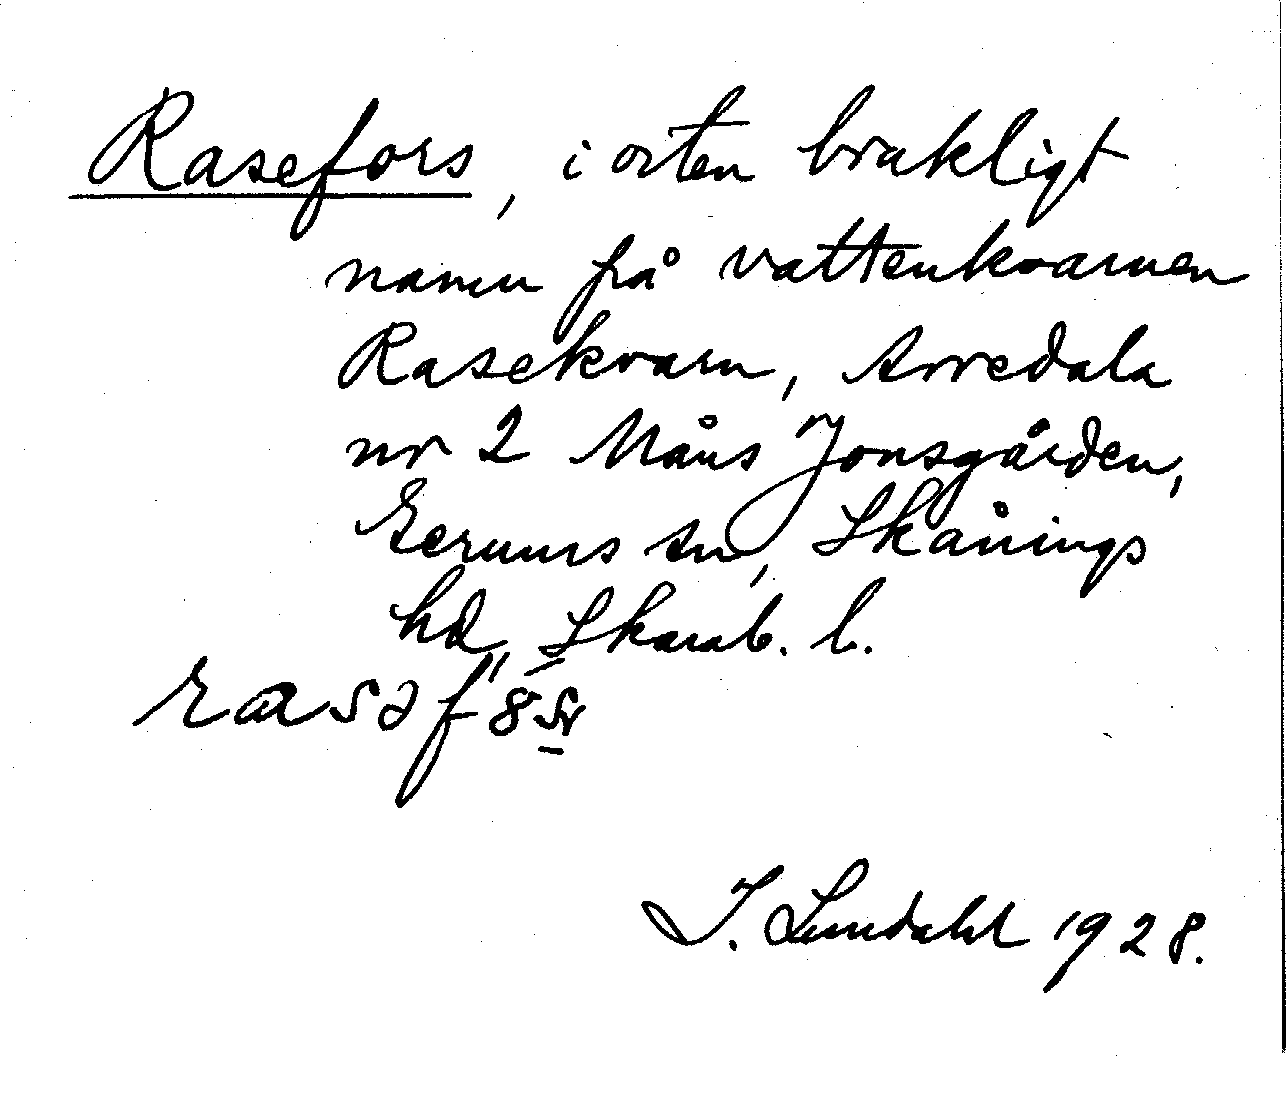 Rasefors, i orten brukligt
namn på vattenkvarnen
Rasekvarn, Arredala
nr 2 Måns Jonsgården,
Gerums sn, Skånings
hd, Skarab. l.
I. Lundahl 1928.